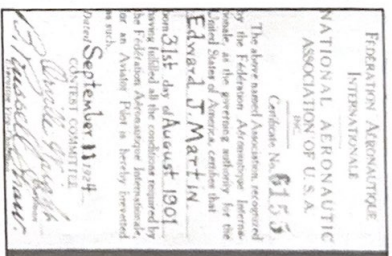 FÉDÉRATION AÉRONAUTIQUE
INTERNATIONALE
NATIONAL AERONAUTIC
ASSOCIATION OF U. S. A.
INC.
Certificate No. 6155
The above named Association, recognized
by the Fédération Aéronautique Interna-
tionale as the governing authority for the
United States of America, certifies that
Edward J. Martin
born 31st day of August 1901
having fulfilled all the conditions required by
the Fédération Aéronautique Internationale,
for an Aviator Pilot is hereby brevetted
as such.
Dated September 11 1924
CONTEST COMMITTEE
Orville Wright
Chairman
B. Russell Shaw